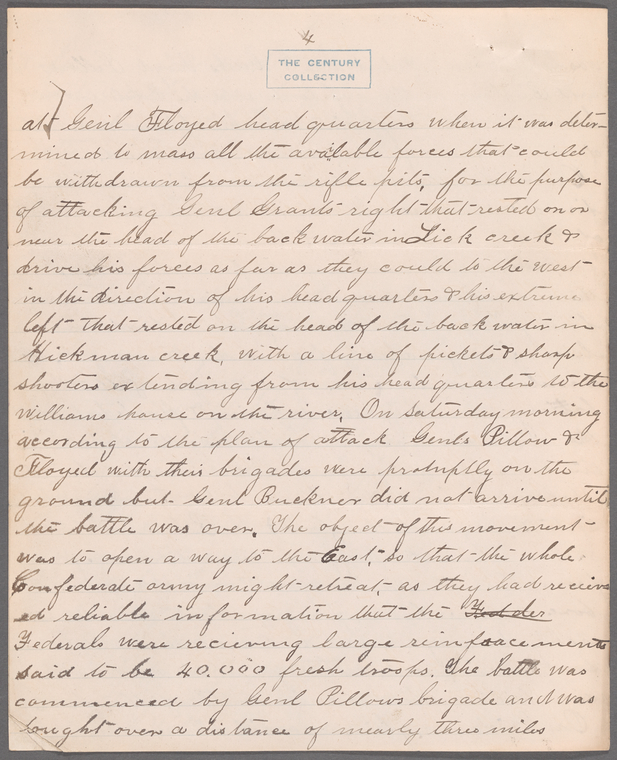 4
THE CENTURY
COLLECTION
at Genl Floyed head quarters when it was deter-
mined to mass all the available forces that could
be withdrawn from the rifle pits, for the purpose
of attacking Genl Grants right that rested on or
near the head of the back water in Lick creek &
drive his forces as far as they could to the west
in the direction of his head quarters & his extreme
left that rested on the head of the back water in
Hickman creek, with a line of pickets & sharp
shooters extending from his head quarters to the
Williams house on the river. On Saturday morning
according to the plan of attack Genls Pillow &
Floyed with their brigades were protuptly on the
ground but Genl Buckner did not arrive until
the battle was over. The object of this movement
was to open a way to the East, so that the whole
Confederate army might retreat, as they had reciev
ed reliable information that the Fedder
Federals were recieving large reinforcements
said to be 40.000 fresh troops. The battle was
commenced by Genl Pillows brigade and was
fought over a distance of nearly three miles